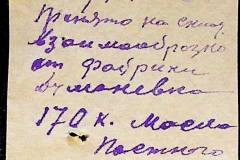 Принято на склад
взаимообразно
от фабрики
170 к. масла
постного